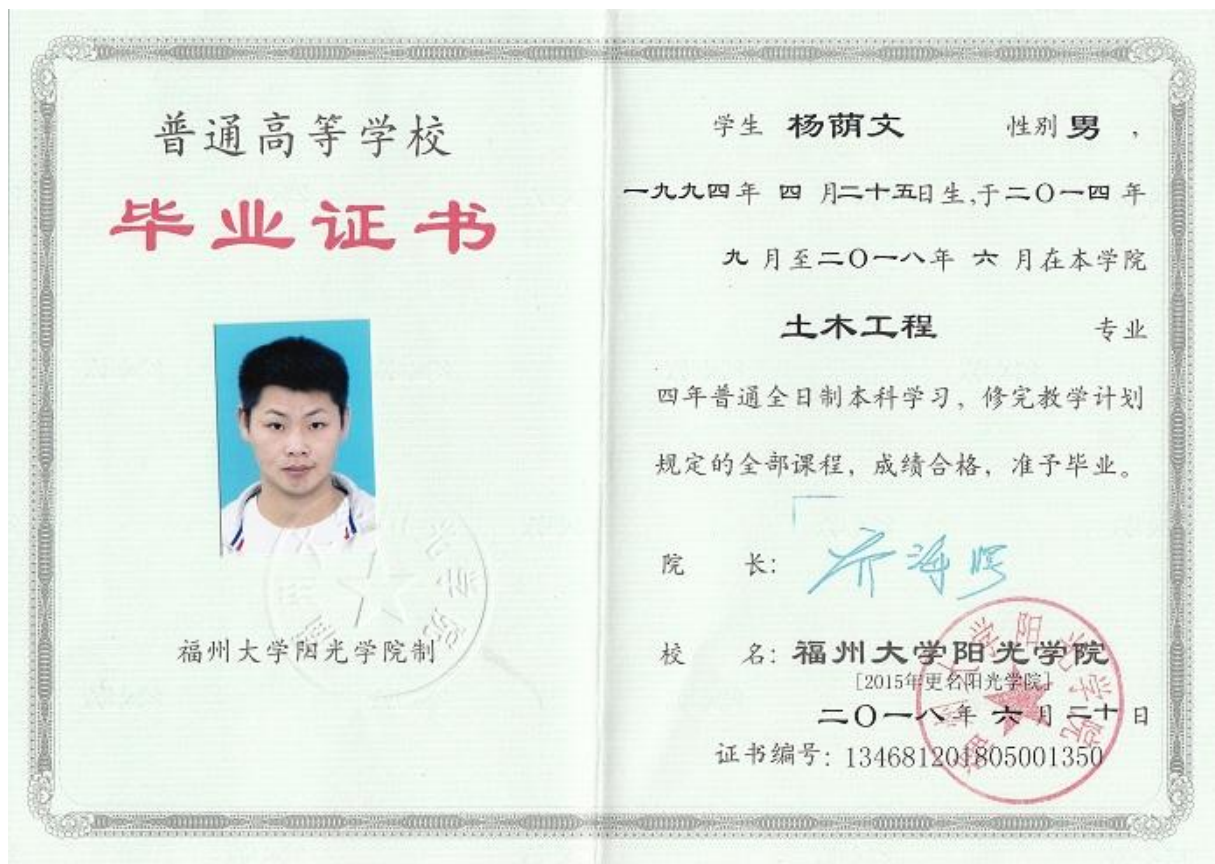 普通高等学校
毕业证书
福州大学阳光学院制
学生 杨荫文 性别 男 ，
一九九四年 四 月二十五日生,于二〇一四 年
九 月至二〇一八年 六 月在本学院
土木工程 专业
四年普通全日制本科学习，修完教学计划
规定的全部课程，成绩合格，准予毕业。
院 长：
校 名：福州大学阳光学院
[2015年更名阳光学院]
二〇一八年 六 月 二十 日
证书编号：134681201805001350
福州大学阳光学院